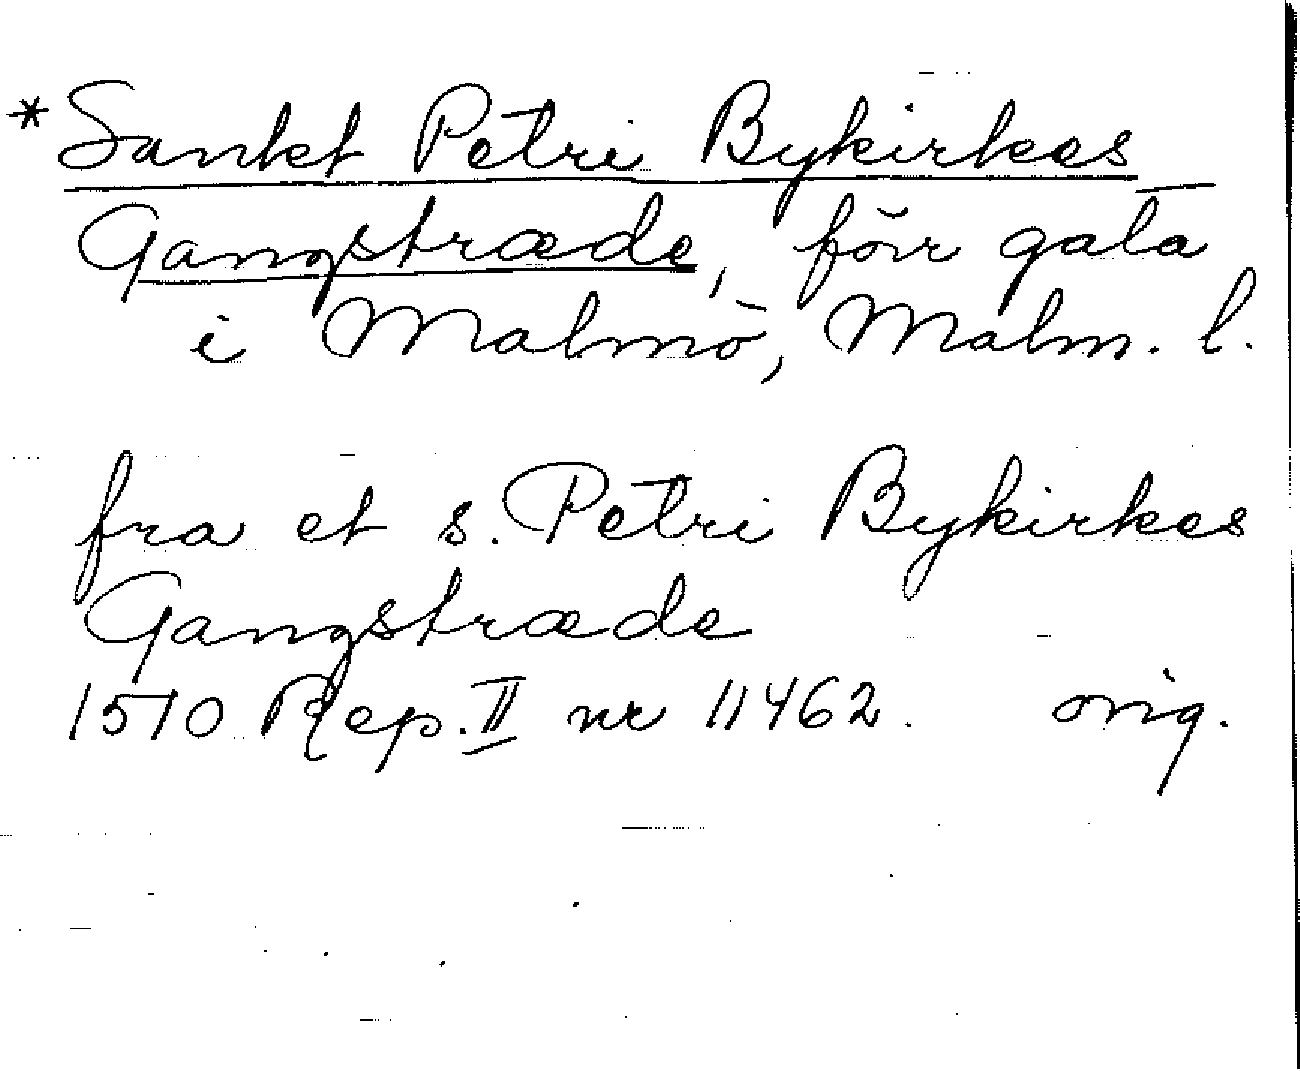 *Sankt Petri Bykirkes
Gangstræde, förr gata
i Malmö, Malm. l.
fra et s. Petri Bykirkes
Gangstræde
1510 Rep. II nr 11462. orig.